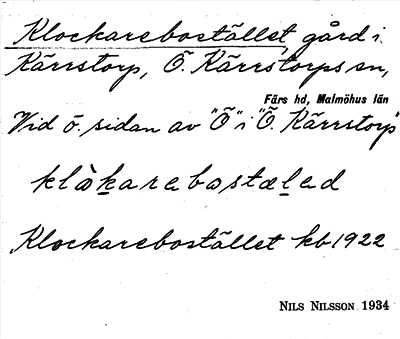 Klockarebostället, gård i
Kärrstorp, Ö. Kärrstorps sn,
Färs hd, Malmöhus län
Vid ö. sidan av "Ö" i "Ö. Kärrstorp"
klòkarebostæled
Klockarebostället kb 1922
NILS NILSSON 1934